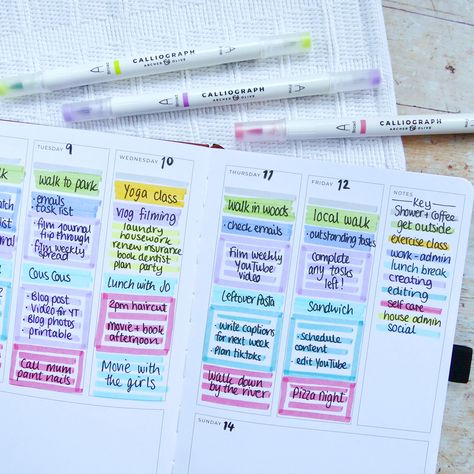 CALLIGRAPH
ARCHER & OLIVE
CALLIGRAPH
ARCHER & OLIVE
CALLIGRAPH
ARCHER & OLIVE
TUESDAY 9
walk to park
· emails
· task list
· film journal
flip through
· film weekly
spread
Cous Cous
· Blog post
· Video for YT
· Blog photos
· printable
Call mum
paint nails
WEDNESDAY 10
Yoga class
Vlog filming
laundry
housework
renew insurance
book dentist
plan party
Lunch with Jo
2pm haircut
movie + book
afternoon
Movie with
the girls
THURSDAY 11
walk in woods
· check emails
film weekly
YouTube
video
Leftover Pasta
· write captions
for next week
· plan tiktoks
walk down
by the river
FRIDAY 12
local walk
· outstanding tasks
complete
any tasks
left!
Sandwich
· schedule
content
· edit YouTube
Pizza night
NOTES
Key
Shower + Coffee
get outside
exercise class
work - admin
lunch break
creating
editing
self care
house admin
social
SUNDAY 14